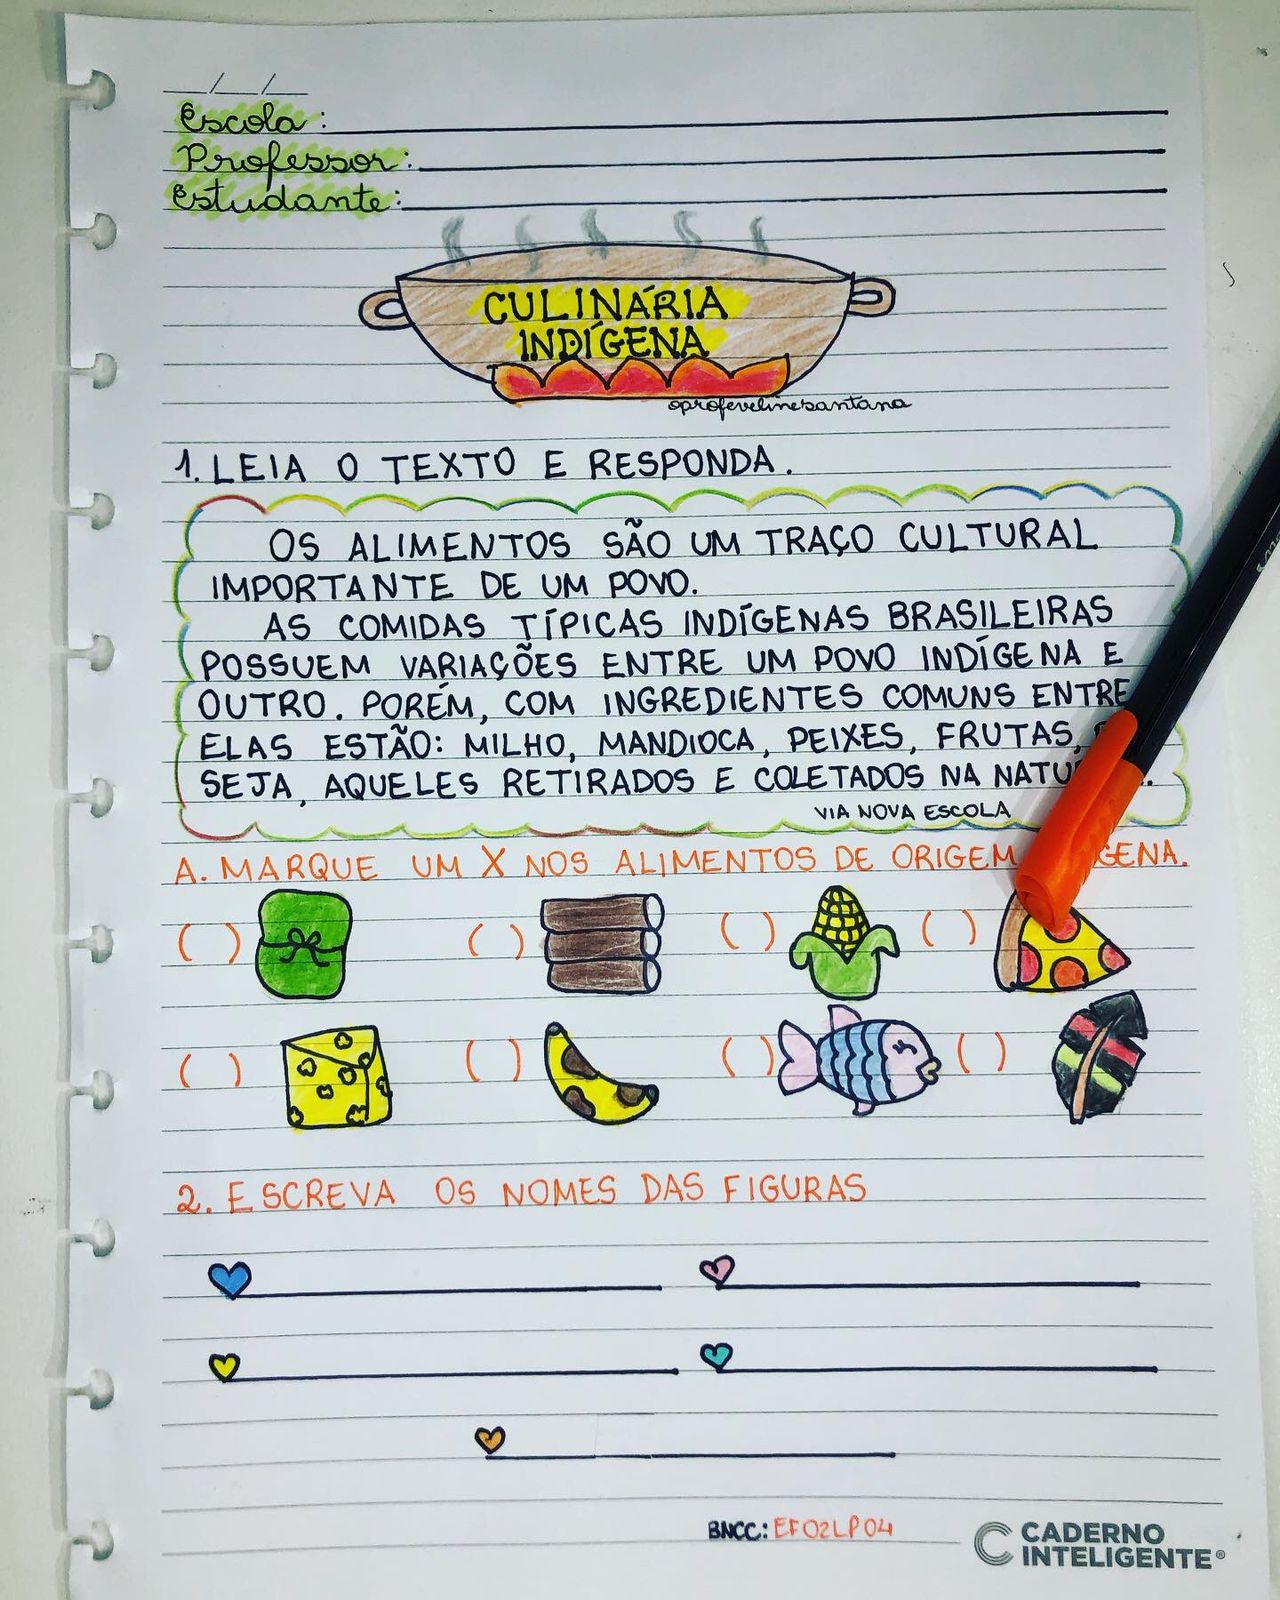 __/__/__
Escola:
Professor:
Estudante:
CULINÁRIA
INDÍGENA
@profevelinesantana
1. LEIA O TEXTO E RESPONDA.
OS ALIMENTOS SÃO UM TRAÇO CULTURAL
IMPORTANTE DE UM POVO.
AS COMIDAS TÍPICAS INDÍGENAS BRASILEIRAS
POSSUEM VARIAÇÕES ENTRE UM POVO INDÍGENA E
OUTRO. PORÉM, COM INGREDIENTES COMUNS ENTRE
ELAS ESTÃO: MILHO, MANDIOCA, PEIXES, FRUTAS,
SEJA, AQUELES RETIRADOS E COLETADOS NA
VIA NOVA ESCOLA
A. MARQUE UM X NOS ALIMENTOS DE ORIGEM
( ) ( ) ( ) ( )
( ) ( ) ( ) ( )
2. ESCREVA OS NOMES DAS FIGURAS
BNCC: EF02LP04
CADERNO
INTELIGENTE®